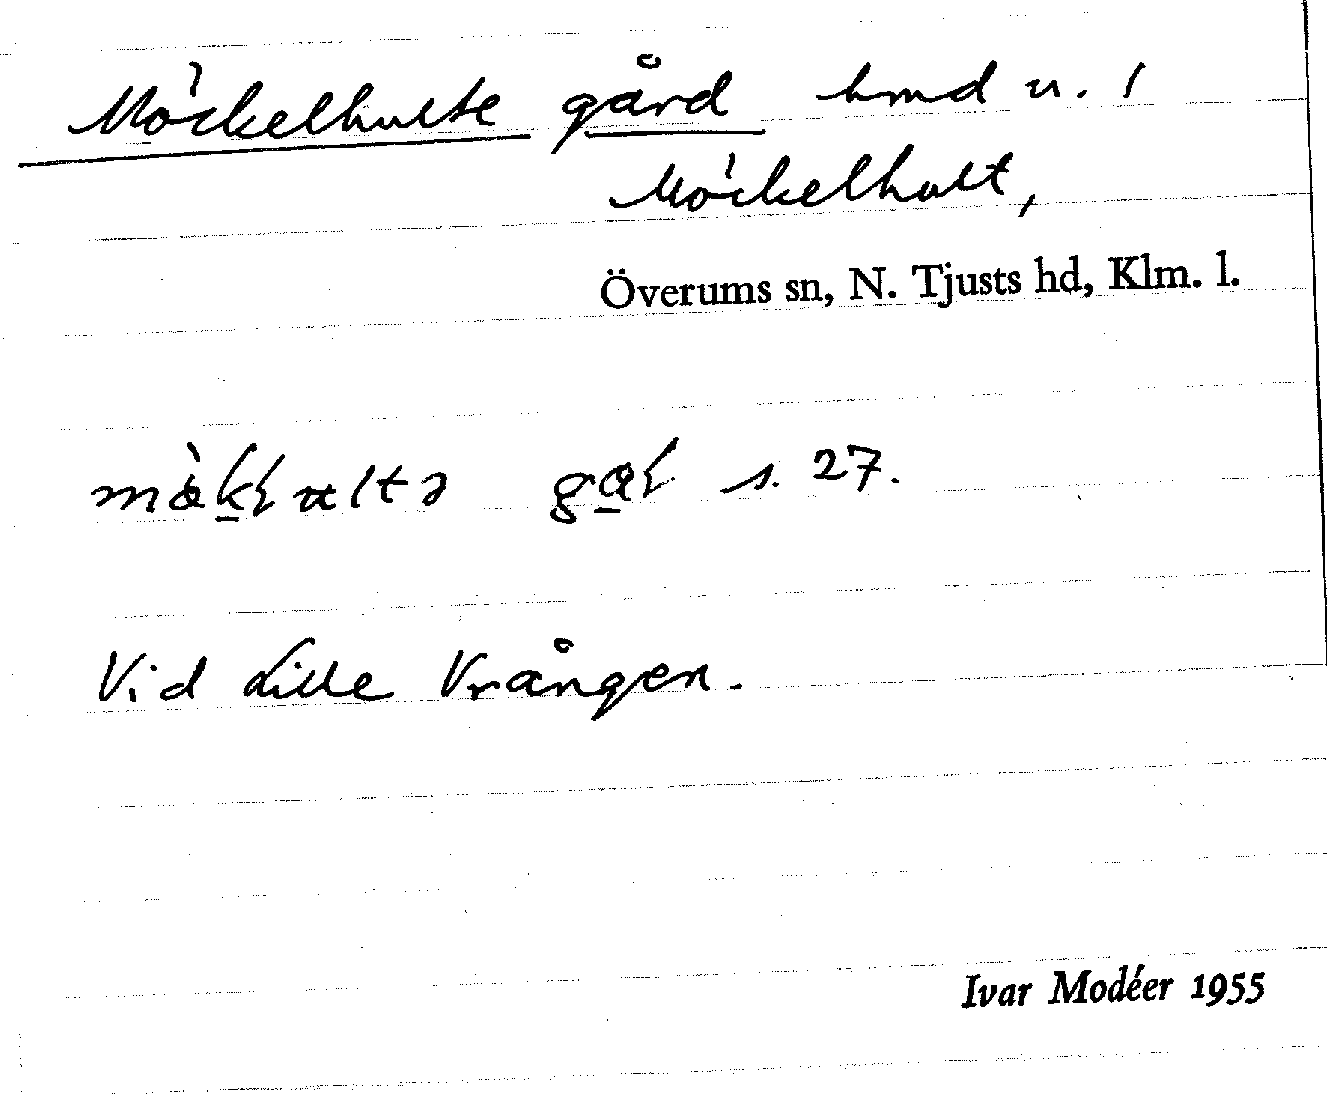 Möckelhulte gård hmd n. 1
Möckelhult,
Överums sn, N. Tjusts hd, Klm. l.
s. 27.
Vid Lille Vrången.
Ivar Modéer 1955